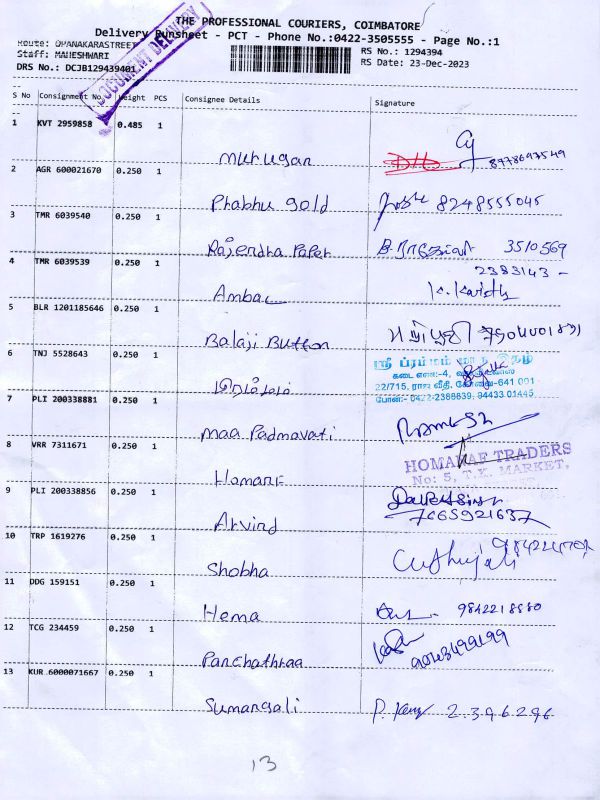 THE PROFESSIONAL COURIERS, COIMBATORE
Delivery Runsheet - PCT - Phone No.:0422-3505555 - Page No.:1
Route: OPANAKARASTREET
Staff: MAHESHWARI
DRS No.: DCJB129439401
RS No.: 1294394
RS Date: 23-Dec-2023
DOCUMENT DELIVERY
S No Consignment No. Weight PCS Consignee Details Signature
1 KVT 2959858 0.485 1
Murugan 8778697549
2 AGR 600021670 0.250 1
Prabhu gold 8248555045
3 TMR 6039540 0.250 1
Rajendra Paper 3510569
4 TMR 6039539 0.250 1
2383143 -
Ambac K. Karthi
5 BLR 1201185646 0.250 1
Balaji Button
6 TNJ 5528643 0.250 1
ஸ்ரீ பிரம்மம்
கடை எண்:-4,
22/715, ராஜ வீதி, கோவை-641 001
போன்:- 0422-2388639, 94433 01445
பிரம்மம்
7 PLI 200338881 0.250 1
Maa Padmavati Ramesh
8 VRR 7311671 0.250 1
HOMANAF TRADERS
No: 5, T.K. MARKET,
9 PLI 200338856 0.250 1
Arvind 7665921637
10 TRP 1619276 0.250 1
Shobha
11 DDG 159151 0.250 1
Hema 9842218880
12 TCG 234459 0.250 1
9043499199
13 KUR 6000071667 0.250 1
Sumangali 2396296
13